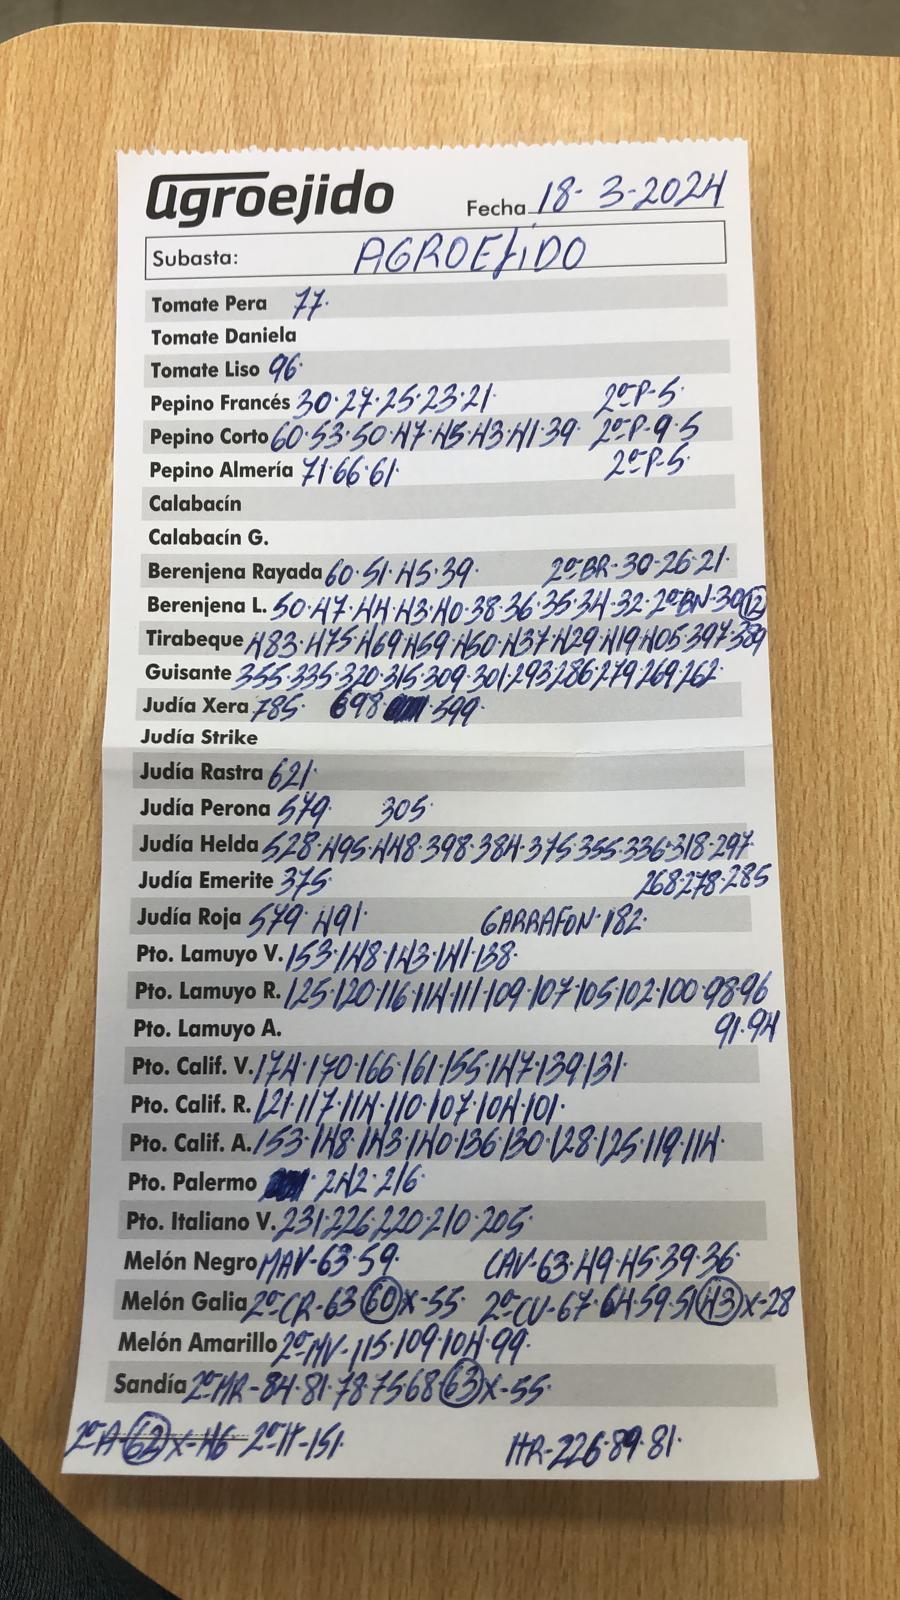 agroejido Fecha 18-3-2024
Subasta: AGROEJIDO
Tomate Pera 77.
Tomate Daniela
Tomate Liso 96.
Pepino Francés 30.27.25.23.21. 2ªP-5.
Pepino Corto 60.53.50.47.45.43.41.39. 2ªP-9-5
Pepino Almería 71.66.61. 2ªP-5.
Calabacín
Calabacín G.
Berenjena Rayada 60.51.45.39. 2ªBR-30-26-21.
Berenjena L. 50.47.44.43.40.38.36.35.34.32. 2ªBN-30 12
Tirabeque 483.475.469.459.450.437.429.419.405.397.389
Guisante 355.335.320.315.309.301.293.286.279.269.262.
Judía Xera 785. 698. 599.
Judía Strike
Judía Rastra 621.
Judía Perona 579. 305.
Judía Helda 528.495.448.398.384.375.355.336.318.297.
Judía Emerite 375. 268.278.285
Judía Roja 579.491. GARRAFON-182.
Pto. Lamuyo V. 153.148.143.141.138.
Pto. Lamuyo R. 125.120.116.114.111.109.107.105.102.100.98.96
Pto. Lamuyo A. 91.94
Pto. Calif. V. 174.170.166.161.155.147.139.131.
Pto. Calif. R. 121.117.114.110.107.104.101.
Pto. Calif. A. 153.148.143.140.136.130.128.125.119.114.
Pto. Palermo 242.216.
Pto. Italiano V. 231.226.220.210.205.
Melón Negro MAV-63.59. CAV-63.49.45.39.36.
Melón Galia 2ªCR-63 60 X-55. 2ªCU-67.64.59.51 43 X-28
Melón Amarillo 2ªMV-115.109.104.99.
Sandía 2ªMR-84.81.78.75.68. 63 X-55.
2ªA-62 X-46- 2ªH-151. HR-226.89.81.